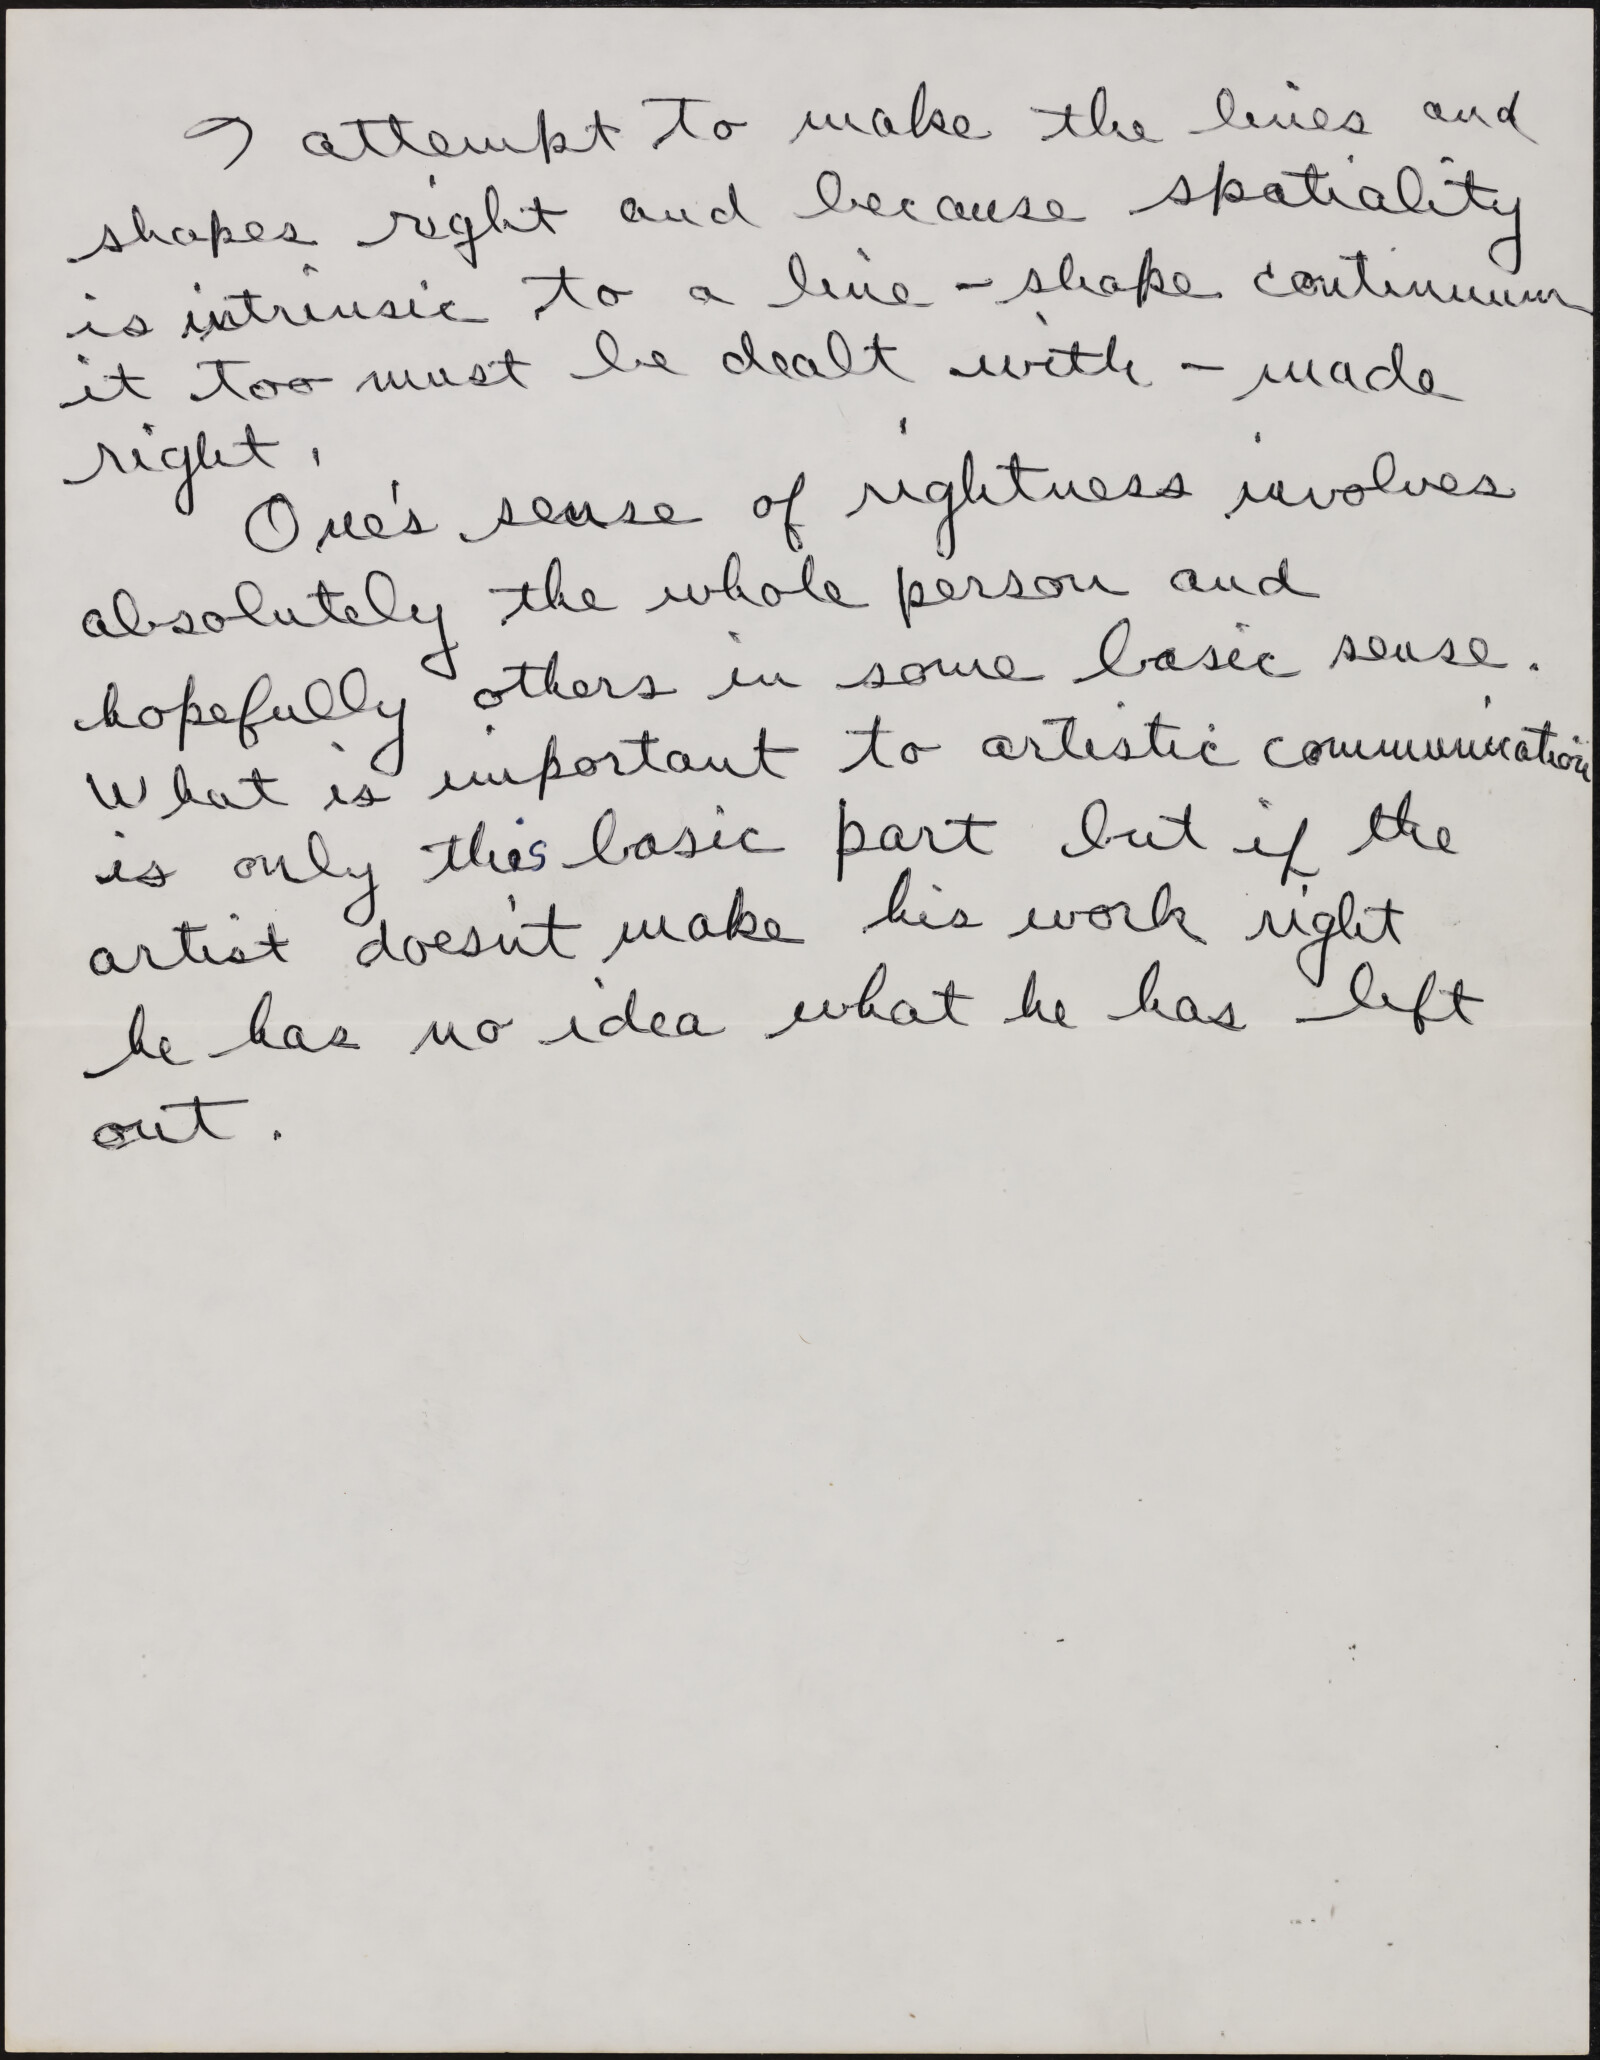 I attempt to make the lines and
shapes right and because spatiality
is intrinsic to a line - shape continuum
it too must be dealt with - made
right.
One's sense of rightness involves
absolutely the whole person and
hopefully others in some basic sense.
What is important to artistic communication
is only this basic part but if the
artist doesn't make his work right
he has no idea what he has left
out.